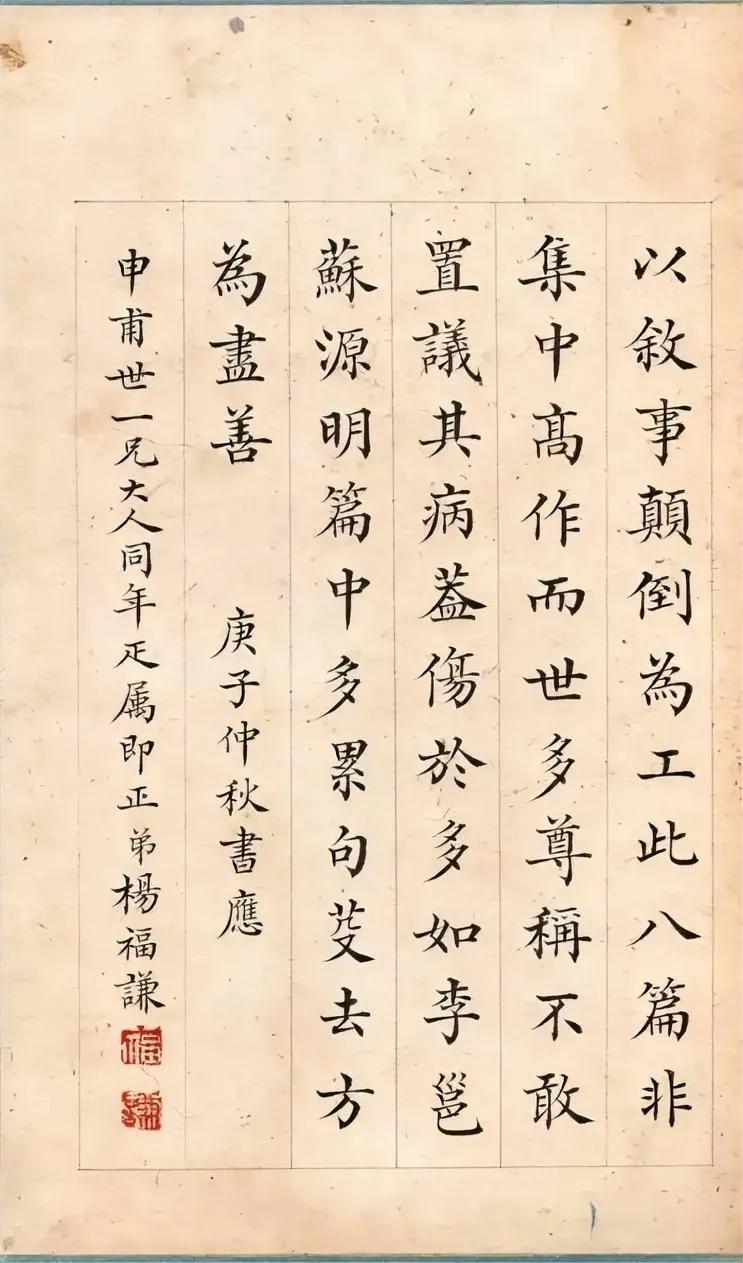 以敘事顛倒為工此八篇非
集中髙作而世多尊稱不敢
置議其病葢傷於多如李邕
蘇源明篇中多累句芟去方
為盡善　庚子仲秋書應
申甫世一兄大人同年疋属即正弟楊福謙
福
謙